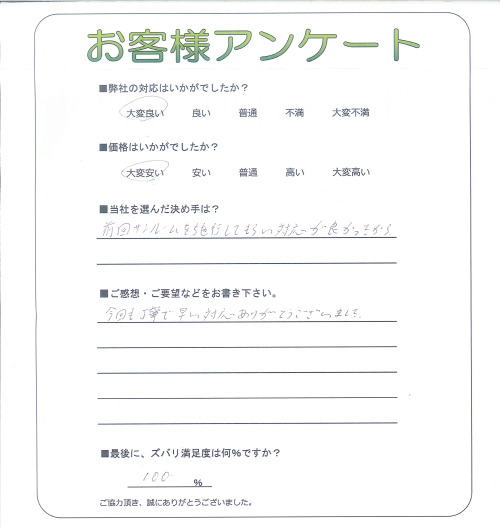 お客様アンケート
■弊社の対応はいかがでしたか？
大変良い 良い 普通 不満 大変不満
■価格はいかがでしたか？
大変安い 安い 普通 高い 大変高い
■当社を選んだ決め手は？
前回サンルームを施行してもらい対応が良かったから
■ご感想・ご要望などをお書き下さい。
今回も丁寧で早い対応ありがとうございました。
■最後に、ズバリ満足度は何%ですか？
100 %
ご協力頂き、誠にありがとうございました。